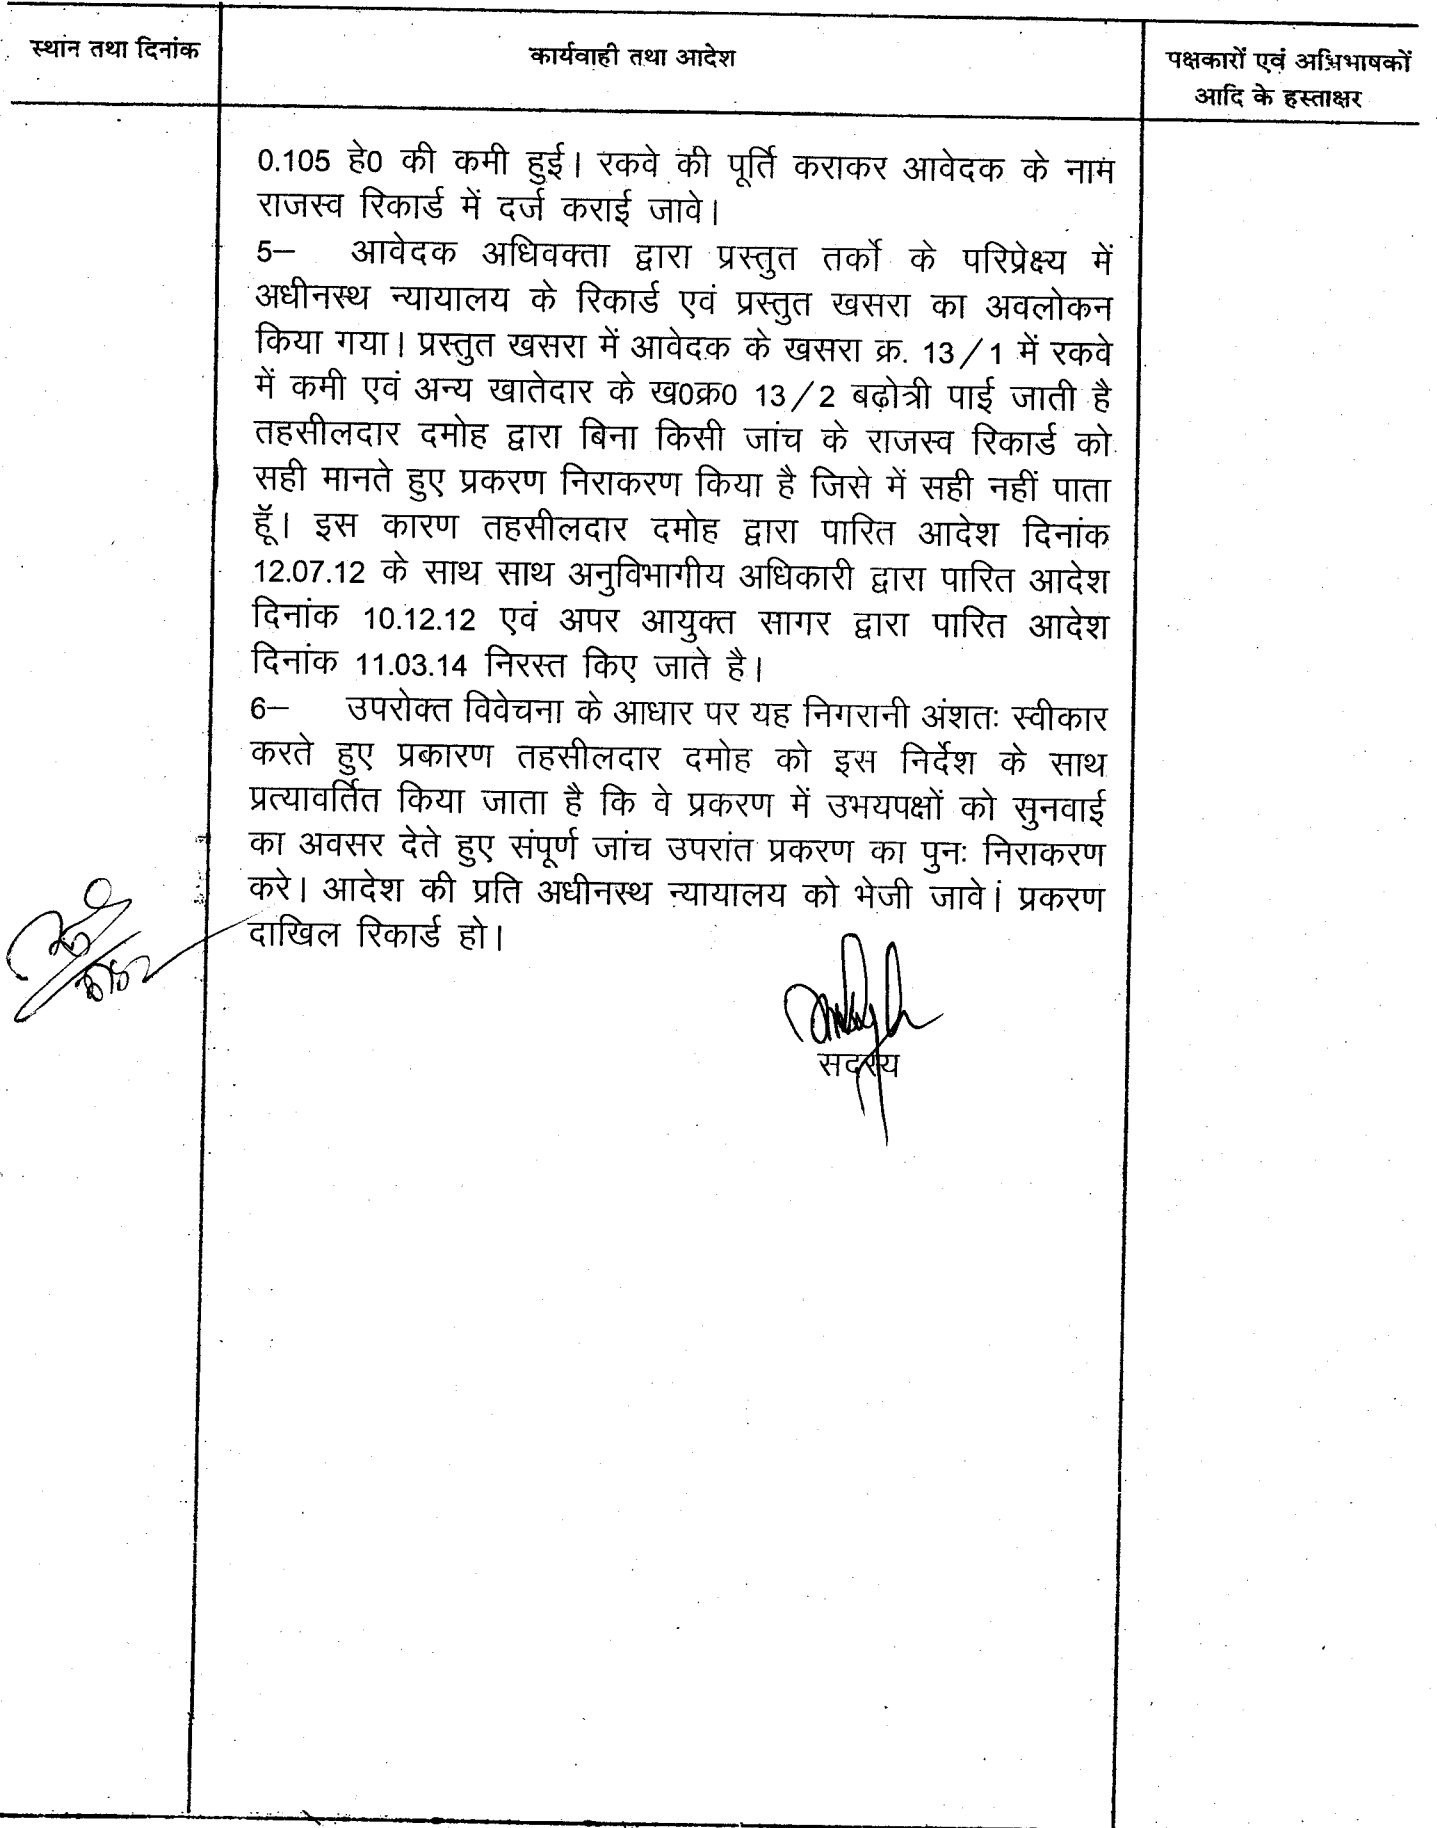 स्थान तथा दिनांक
कार्यवाही तथा आदेश
पक्षकारों एवं अभिभाषकों
आदि के हस्ताक्षर
0.105 हे0 की कमी हुई। रकवे की पूर्ति कराकर आवेदक के नाम
राजस्व रिकार्ड में दर्ज कराई जावे।
5– आवेदक अधिवक्ता द्वारा प्रस्तुत तर्को के परिप्रेक्ष्य में
अधीनस्थ न्यायालय के रिकार्ड एवं प्रस्तुत खसरा का अवलोकन
किया गया। प्रस्तुत खसरा में आवेदक के खसरा क्र. 13/1 में रकवे
में कमी एवं अन्य खातेदार के ख0क्र0 13/2 बढ़ोत्री पाई जाती है
तहसीलदार दमोह द्वारा बिना किसी जांच के राजस्व रिकार्ड को
सही मानते हुए प्रकरण निराकरण किया है जिसे में सही नहीं पाता
हूॅ। इस कारण तहसीलदार दमोह द्वारा पारित आदेश दिनांक
12.07.12 के साथ साथ अनुविभागीय अधिकारी द्वारा पारित आदेश
दिनांक 10.12.12 एवं अपर आयुक्त सागर द्वारा पारित आदेश
दिनांक 11.03.14 निरस्त किए जाते है।
6– उपरोक्त विवेचना के आधार पर यह निगरानी अंशतः स्वीकार
करते हुए प्रकारण तहसीलदार दमोह को इस निर्देश के साथ
प्रत्यावर्तित किया जाता है कि वे प्रकरण में उभयपक्षों को सुनवाई
का अवसर देते हुए संपूर्ण जांच उपरांत प्रकरण का पुनः निराकरण
करे। आदेश की प्रति अधीनस्थ न्यायालय को भेजी जावे। प्रकरण
दाखिल रिकार्ड हो।
सदस्य